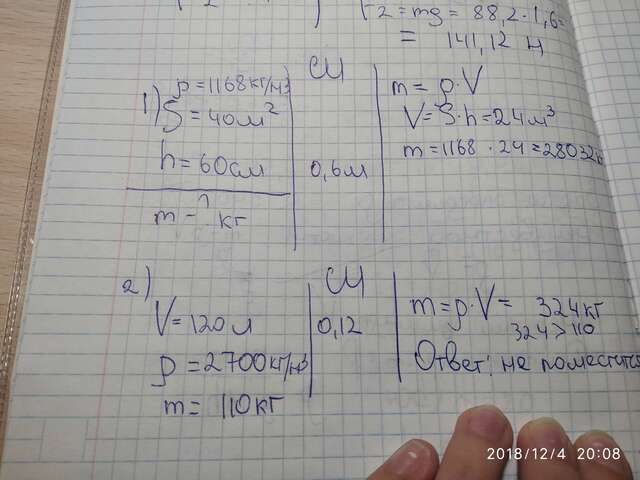 F2 = mg = 88,2·1,6=
= 141,12 Н
1) ρ = 1168 кг/м3
S = 40 м2
h = 60 см
m - ? кг
СИ
0,6 м
m = ρ·V
V = S·h = 24 м3
m = 1168 · 24 = 28032 кг
2)
V = 120 л
ρ = 2700 кг/м3
m = 110 кг
СИ
0,12
m = ρ·V = 324 кг
324 > 110
Ответ: не поместится
2018/12/4 20:08